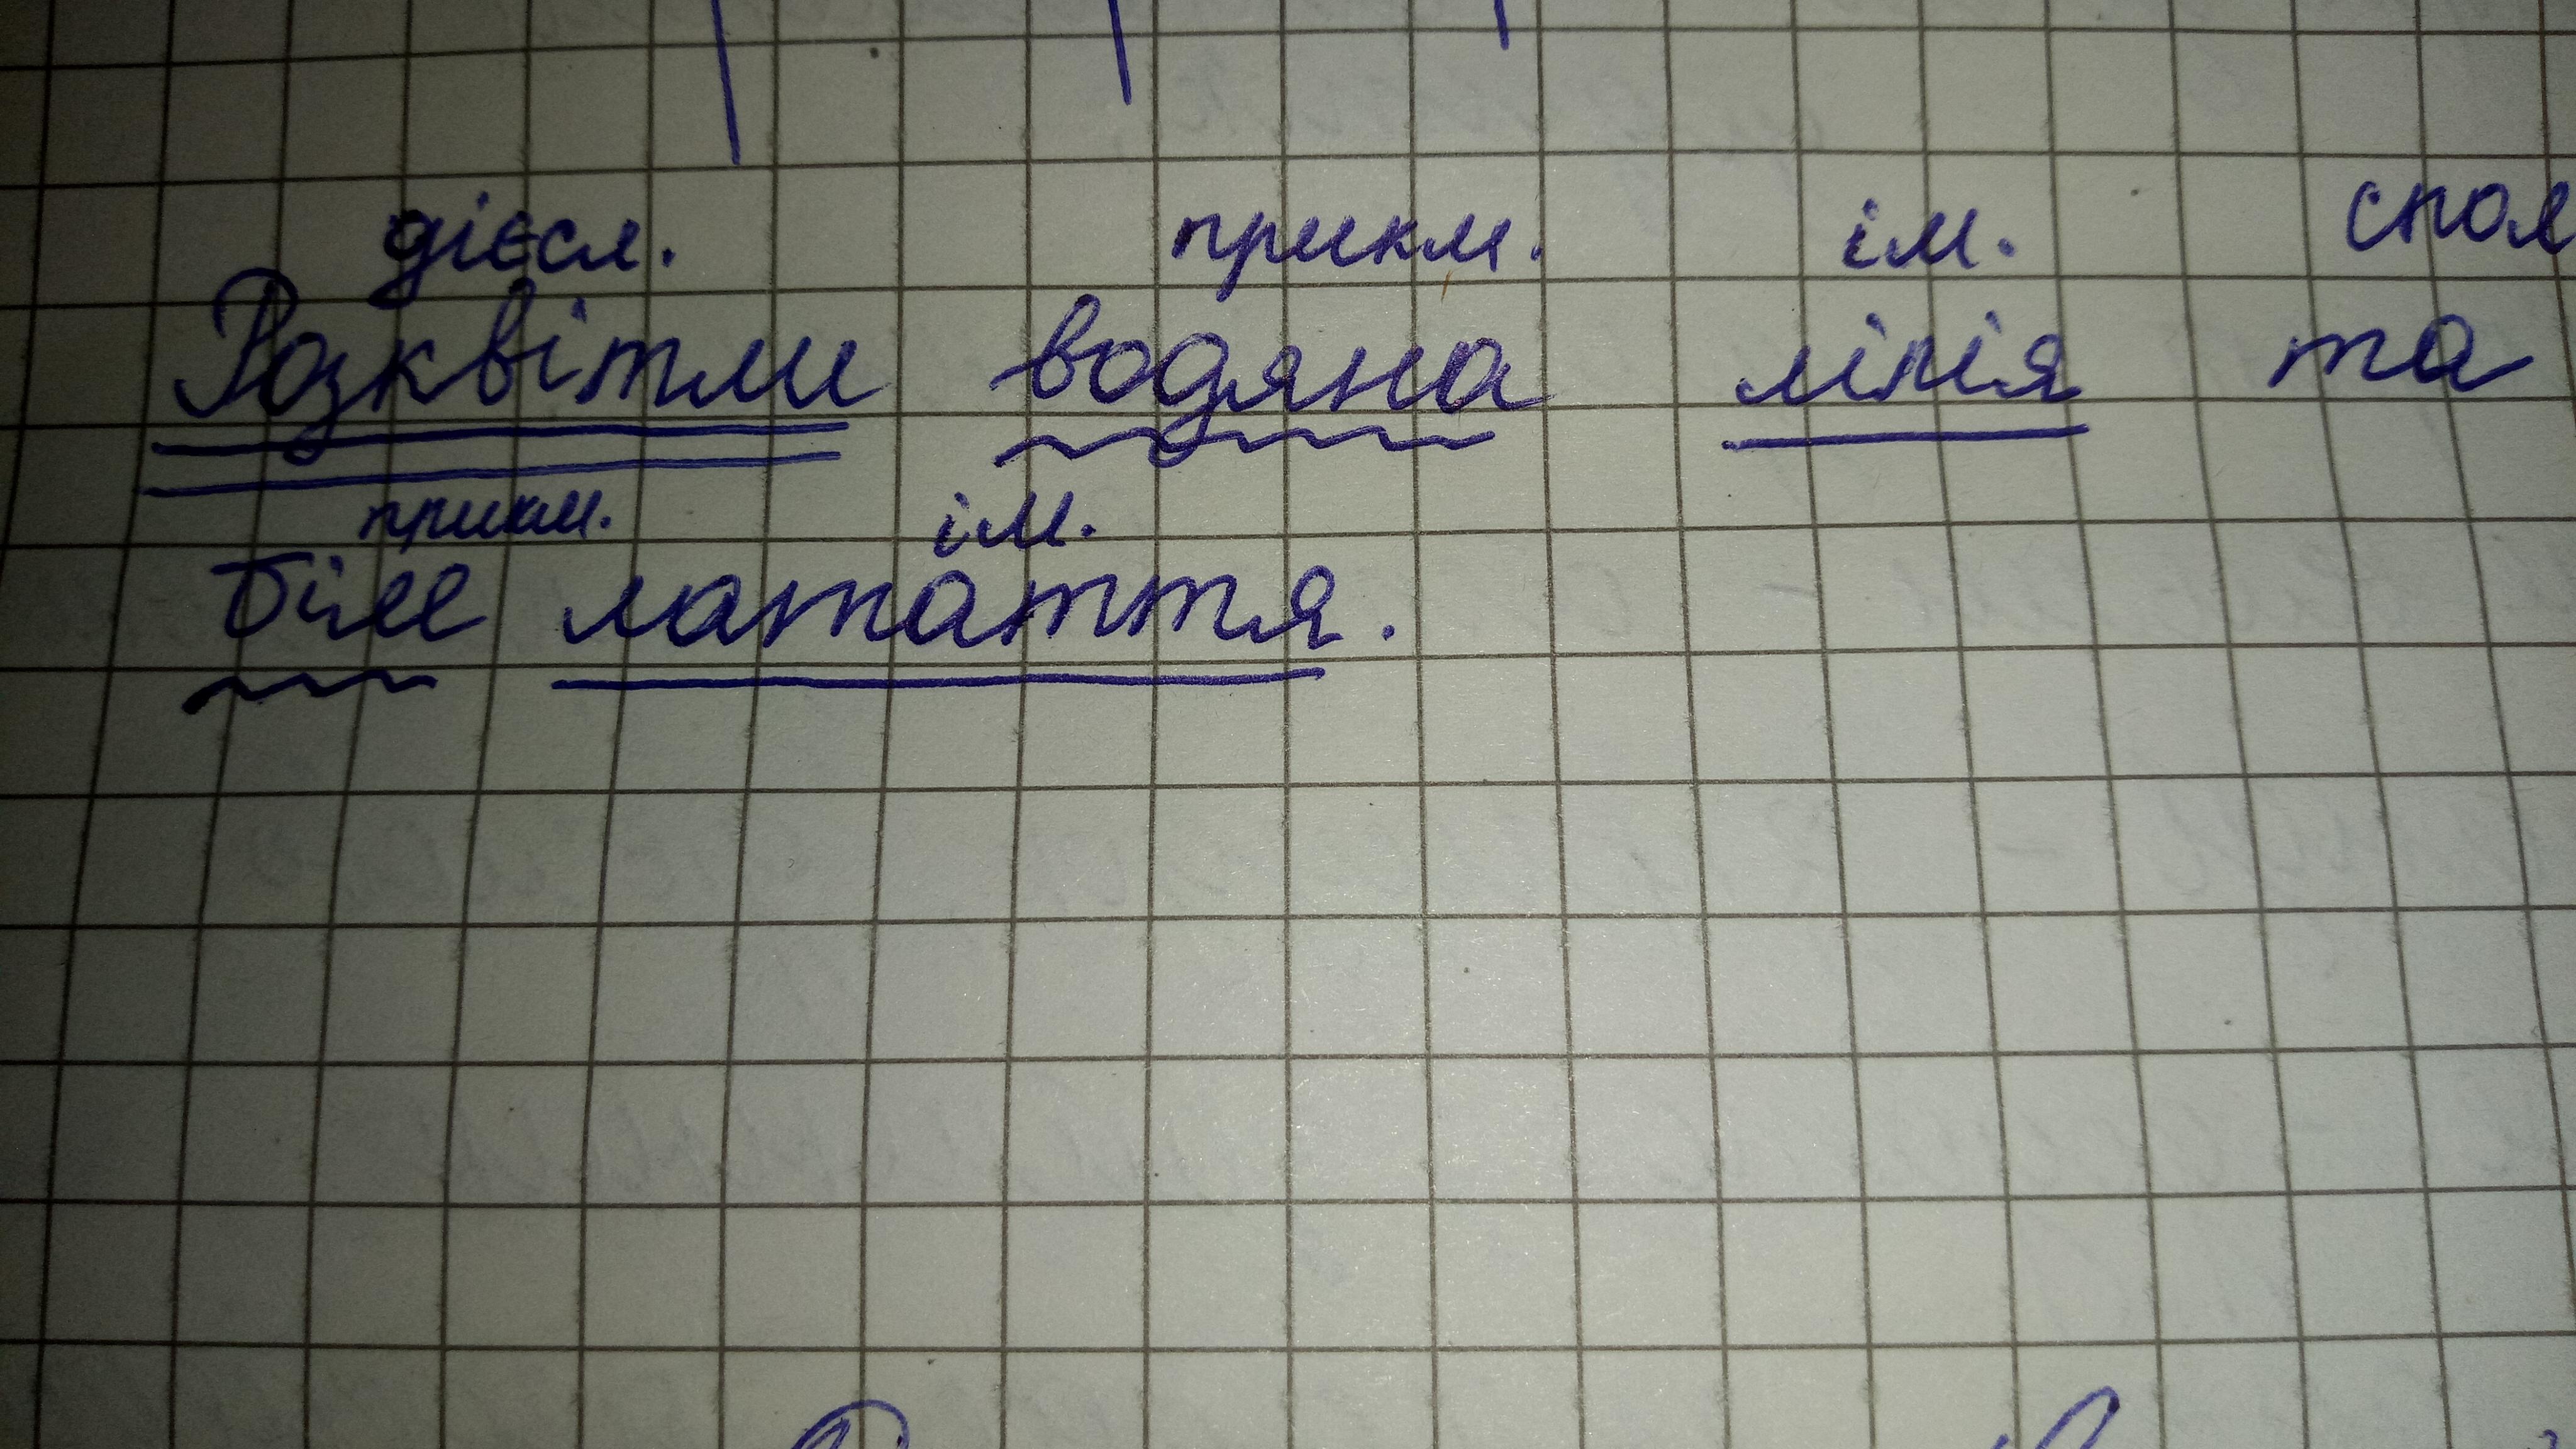 дієсл. прикм. ім. спол
Розквітли водяна лілія та
прикм. ім.
біле латаття.